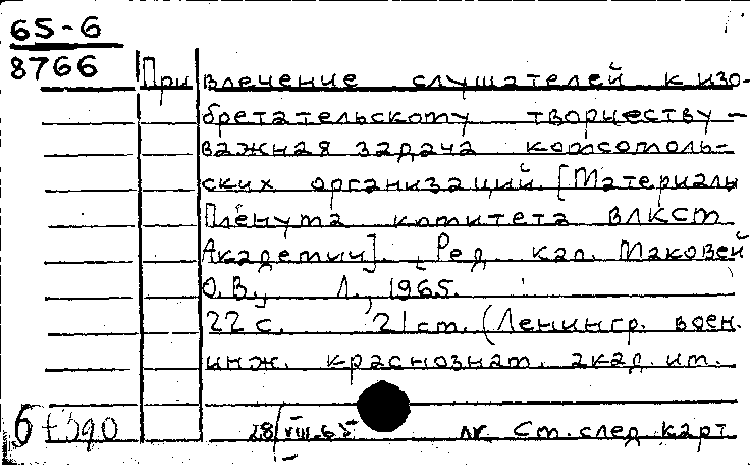 65-6
8766
Привлечение слушателей к изо-
бретательскому творчеству -
важная задача комсомоль-
ских организаций. [Материалы
Пленума комитета ВЛКСМ
Академии]. [Ред. кап. Маковей
О.В.] Л., 1965.
22 с. 21 см. (Ленингр. воен.
инж. краснознам. акад. им.
28/VIII.65 См. след карт